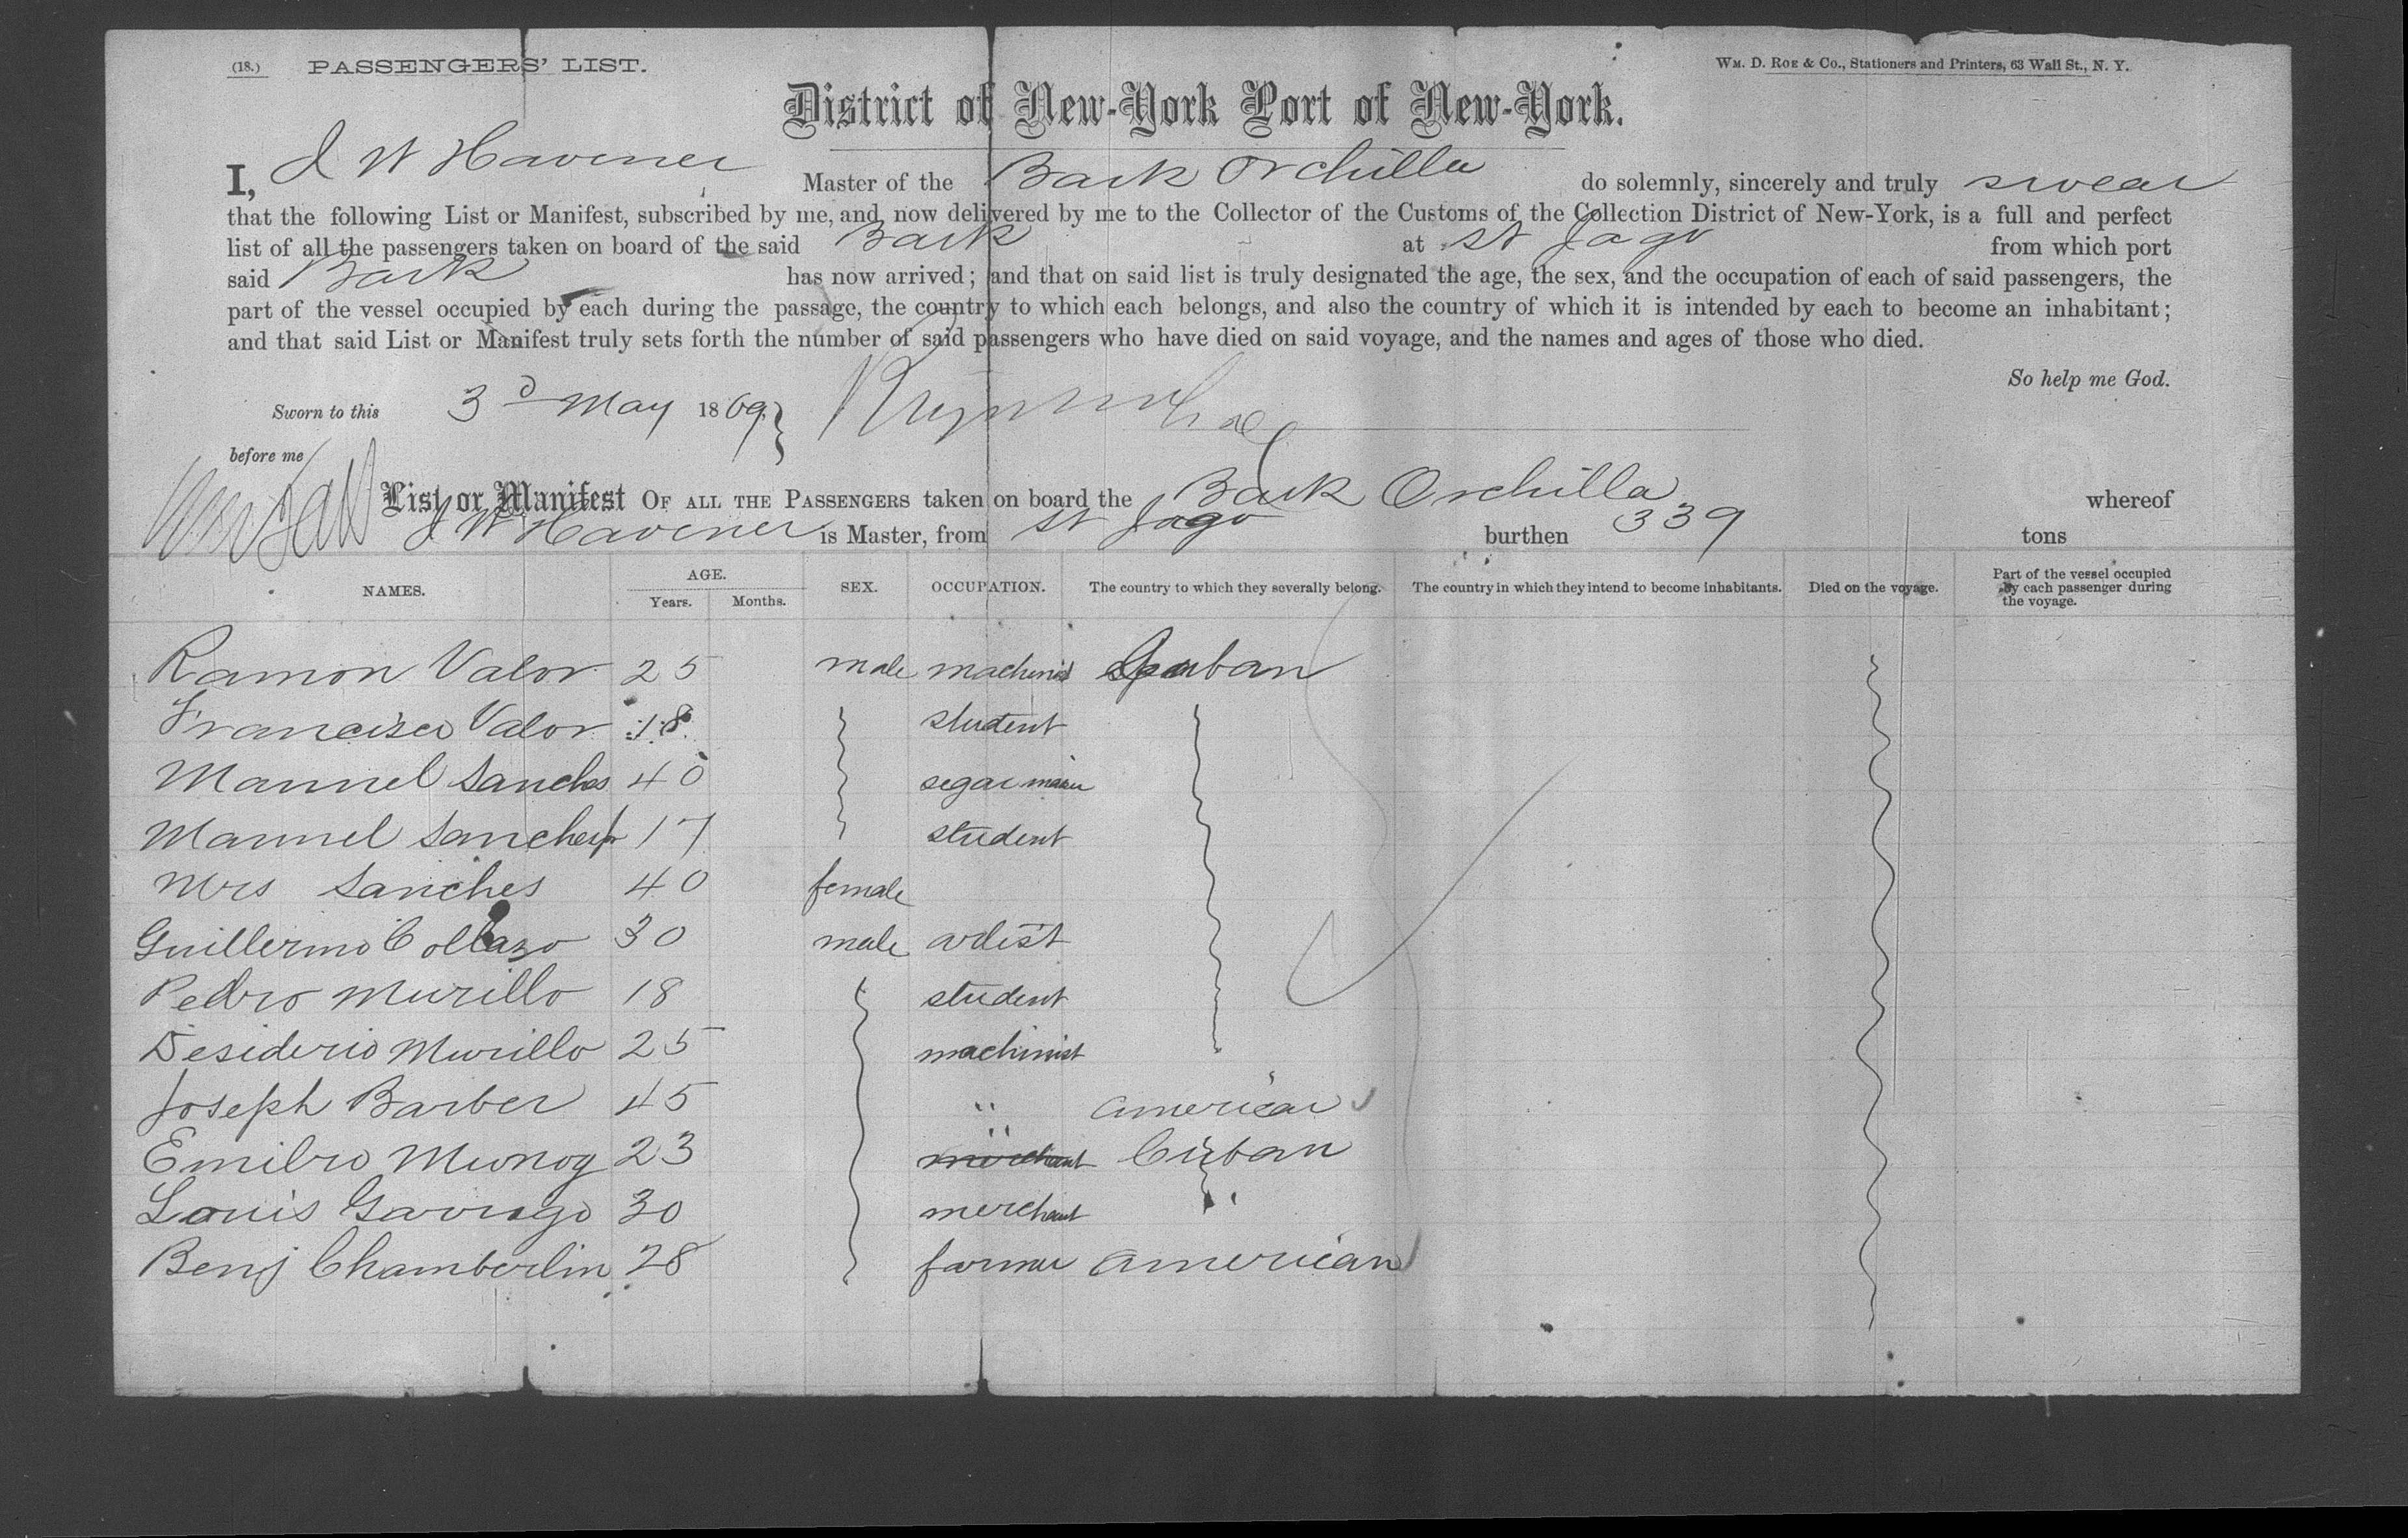 (18.) PASSENGERS' LIST. Wm. D. Roe & Co., Stationers and Printers, 63 Wall St., N. Y.
District of New-York Port of New-York.
I, J W Havener Master of the Bark Orchilla do solemnly, sincerely and truly swear
that the following List or Manifest, subscribed by me, and now delivered by me to the Collector of the Customs of the Collection District of New-York, is a full and perfect
list of all the passengers taken on board of the said Bark at St Jago from which port
said Bark has now arrived; and that on said list is truly designated the age, the sex, and the occupation of each of said passengers, the
part of the vessel occupied by each during the passage, the country to which each belongs, and also the country of which it is intended by each to become an inhabitant;
and that said List or Manifest truly sets forth the number of said passengers who have died on said voyage, and the names and ages of those who died.
So help me God.
Sworn to this 3d May 1869
before me
List or Manifest OF ALL THE PASSENGERS taken on board the Bark Orchilla whereof
J W Havener is Master, from St Jago burthen 339 tons
NAMES. AGE. Years. Months. SEX. OCCUPATION. The country to which they severally belong. The country in which they intend to become inhabitants. Died on the voyage. Part of the vessel occupied by each passenger during the voyage.
Ramon Valor 25 male machinist Cuban
Francisco Valor 18 student
Manuel Sanches 40 segar maker
Manuel Sanches jr 17 student
Mrs Sanches 40 female
Guillermo Collazo 30 male artist
Pedro Murillo 18 student
Desiderio Murillo 25 machinist
Joseph Barber 45 " American
Emilio Munoz 23 " merchant Cuban
Louis Garrigo 30 merchant "
Benj Chamberlin 28 farmer American